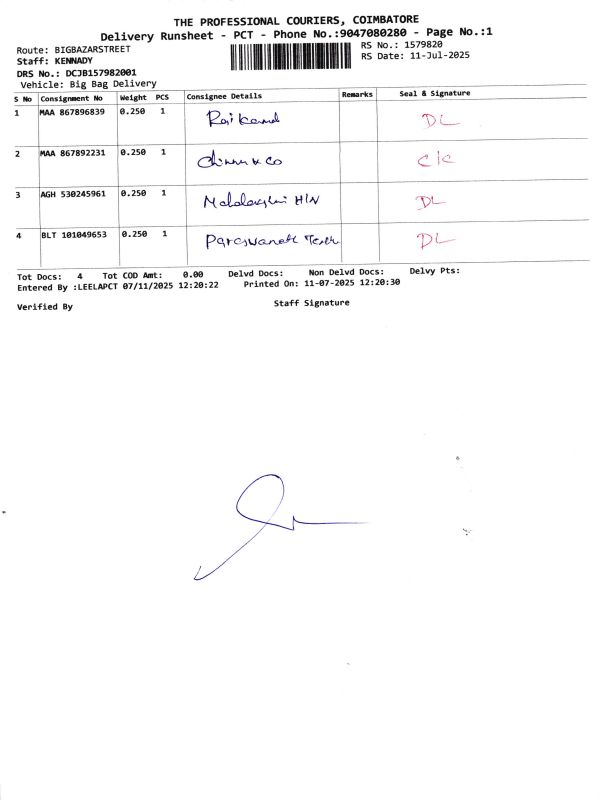 THE PROFESSIONAL COURIERS, COIMBATORE
Delivery Runsheet - PCT - Phone No.:9047080280 - Page No.:1
Route: BIGBAZARSTREET
RS No.: 1579820
Staff: KENNADY
RS Date: 11-Jul-2025
DRS No.: DCJB157982001
Vehicle: Big Bag Delivery
S No Consignment No Weight PCS Consignee Details Remarks Seal & Signature
1 MAA 867896839 0.250 1 DL
2 MAA 867892231 0.250 1 Chinnu & Co C/C
3 AGH 530245961 0.250 1 DL
4 BLT 101049653 0.250 1 DL
Tot Docs: 4 Tot COD Amt: 0.00 Delvd Docs: Non Delvd Docs: Delvy Pts:
Entered By :LEELAPCT 07/11/2025 12:20:22 Printed On: 11-07-2025 12:20:30
Verified By Staff Signature